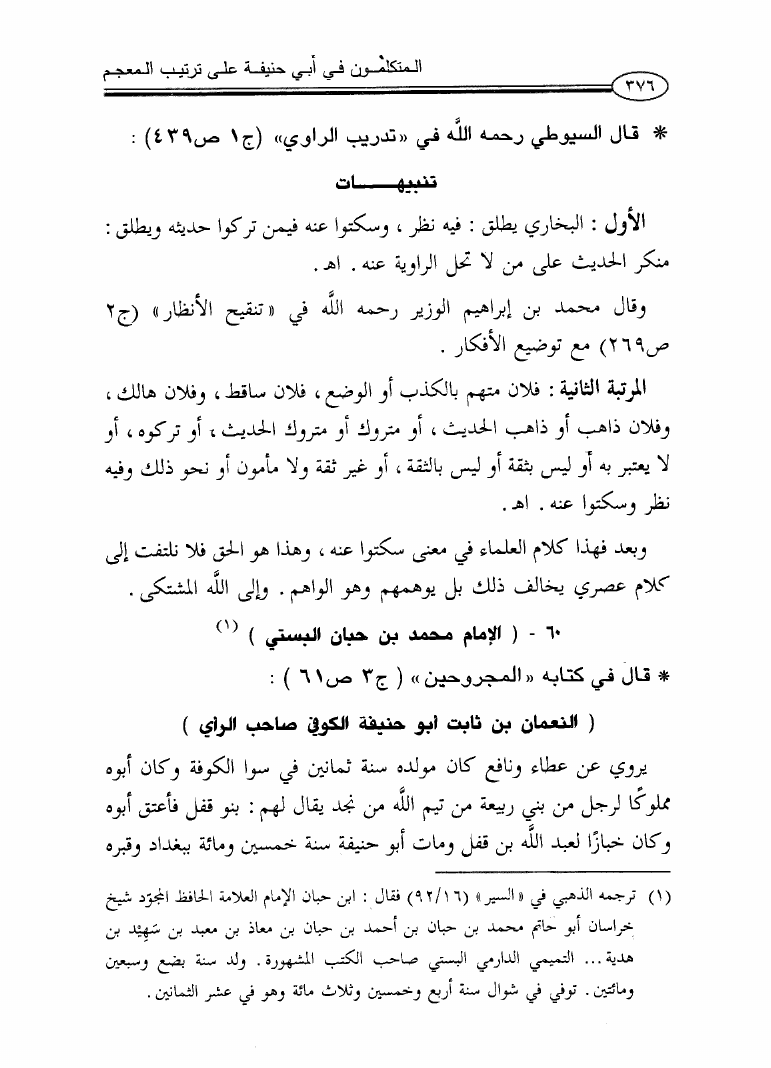 المتكلمون في أبي حنيفة على ترتيب المعجم
٣٧٦
* قال السيوطي رحمه اللَّه في «تدريب الراوي» (ج١ ص٤٣٩) :
تنبيهـــــات
الأول : البخاري يطلق : فيه نظر ، وسكتوا عنه فيمن تركوا حديثه ويطلق :
منكر الحديث على من لا تحل الراوية عنه . اهـ .
وقال محمد بن إبراهيم الوزير رحمه اللَّه في «تنقيح الأنظار» (ج٢
ص٢٦٩) مع توضيع الأفكار .
المرتبة الثانية : فلان متهم بالكذب أو الوضع ، فلان ساقط ، وفلان هالك ،
وفلان ذاهب أو ذاهب الحديث ، أو متروك أو متروك الحديث ، أو تركوه ، أو
لا يعتبر به أو ليس بثقة أو ليس بالثقة ، أو غير ثقة ولا مأمون أو نحو ذلك وفيه
نظر وسكتوا عنه . اهـ .
وبعد فهذا كلام العلماء في معنى سكتوا عنه ، وهذا هو الحق فلا نلتفت إلى
كلام عصري يخالف ذلك بل يوهمهم وهو الواهم . وإلى اللَّه المشتكى .
٦٠ - ( الإمام محمد بن حبان البستي ) (١)
* قال في كتابه «المجروحين» ( ج٣ ص٦١ ) :
( النعمان بن ثابت أبو حنيفة الكوفي صاحب الرأي )
يروي عن عطاء ونافع كان مولده سنة ثمانين في سوا الكوفة وكان أبوه
مملوكًا لرجل من بني ربيعة من تيم اللَّه من نجد يقال لهم : بنو قفل فأعتق أبوه
وكان خبازًا لعبد اللَّه بن قفل ومات أبو حنيفة سنة خمسين ومائة ببغداد وقبره
(١) ترجمه الذهبي في «السير» (٩٢/١٦) فقال : ابن حبان الإمام العلامة الحافظ المجوّد شيخ
خراسان أبو حاتم محمد بن حبان بن أحمد بن حبان بن معاذ بن معبد بن سَهِيْد بن
هدية ... التميمي الدارمي البستي صاحب الكتب المشهورة . ولد سنة بضع وسبعين
ومائتين . توفي في شوال سنة أربع وخمسين وثلاث مائة وهو في عشر الثمانين .